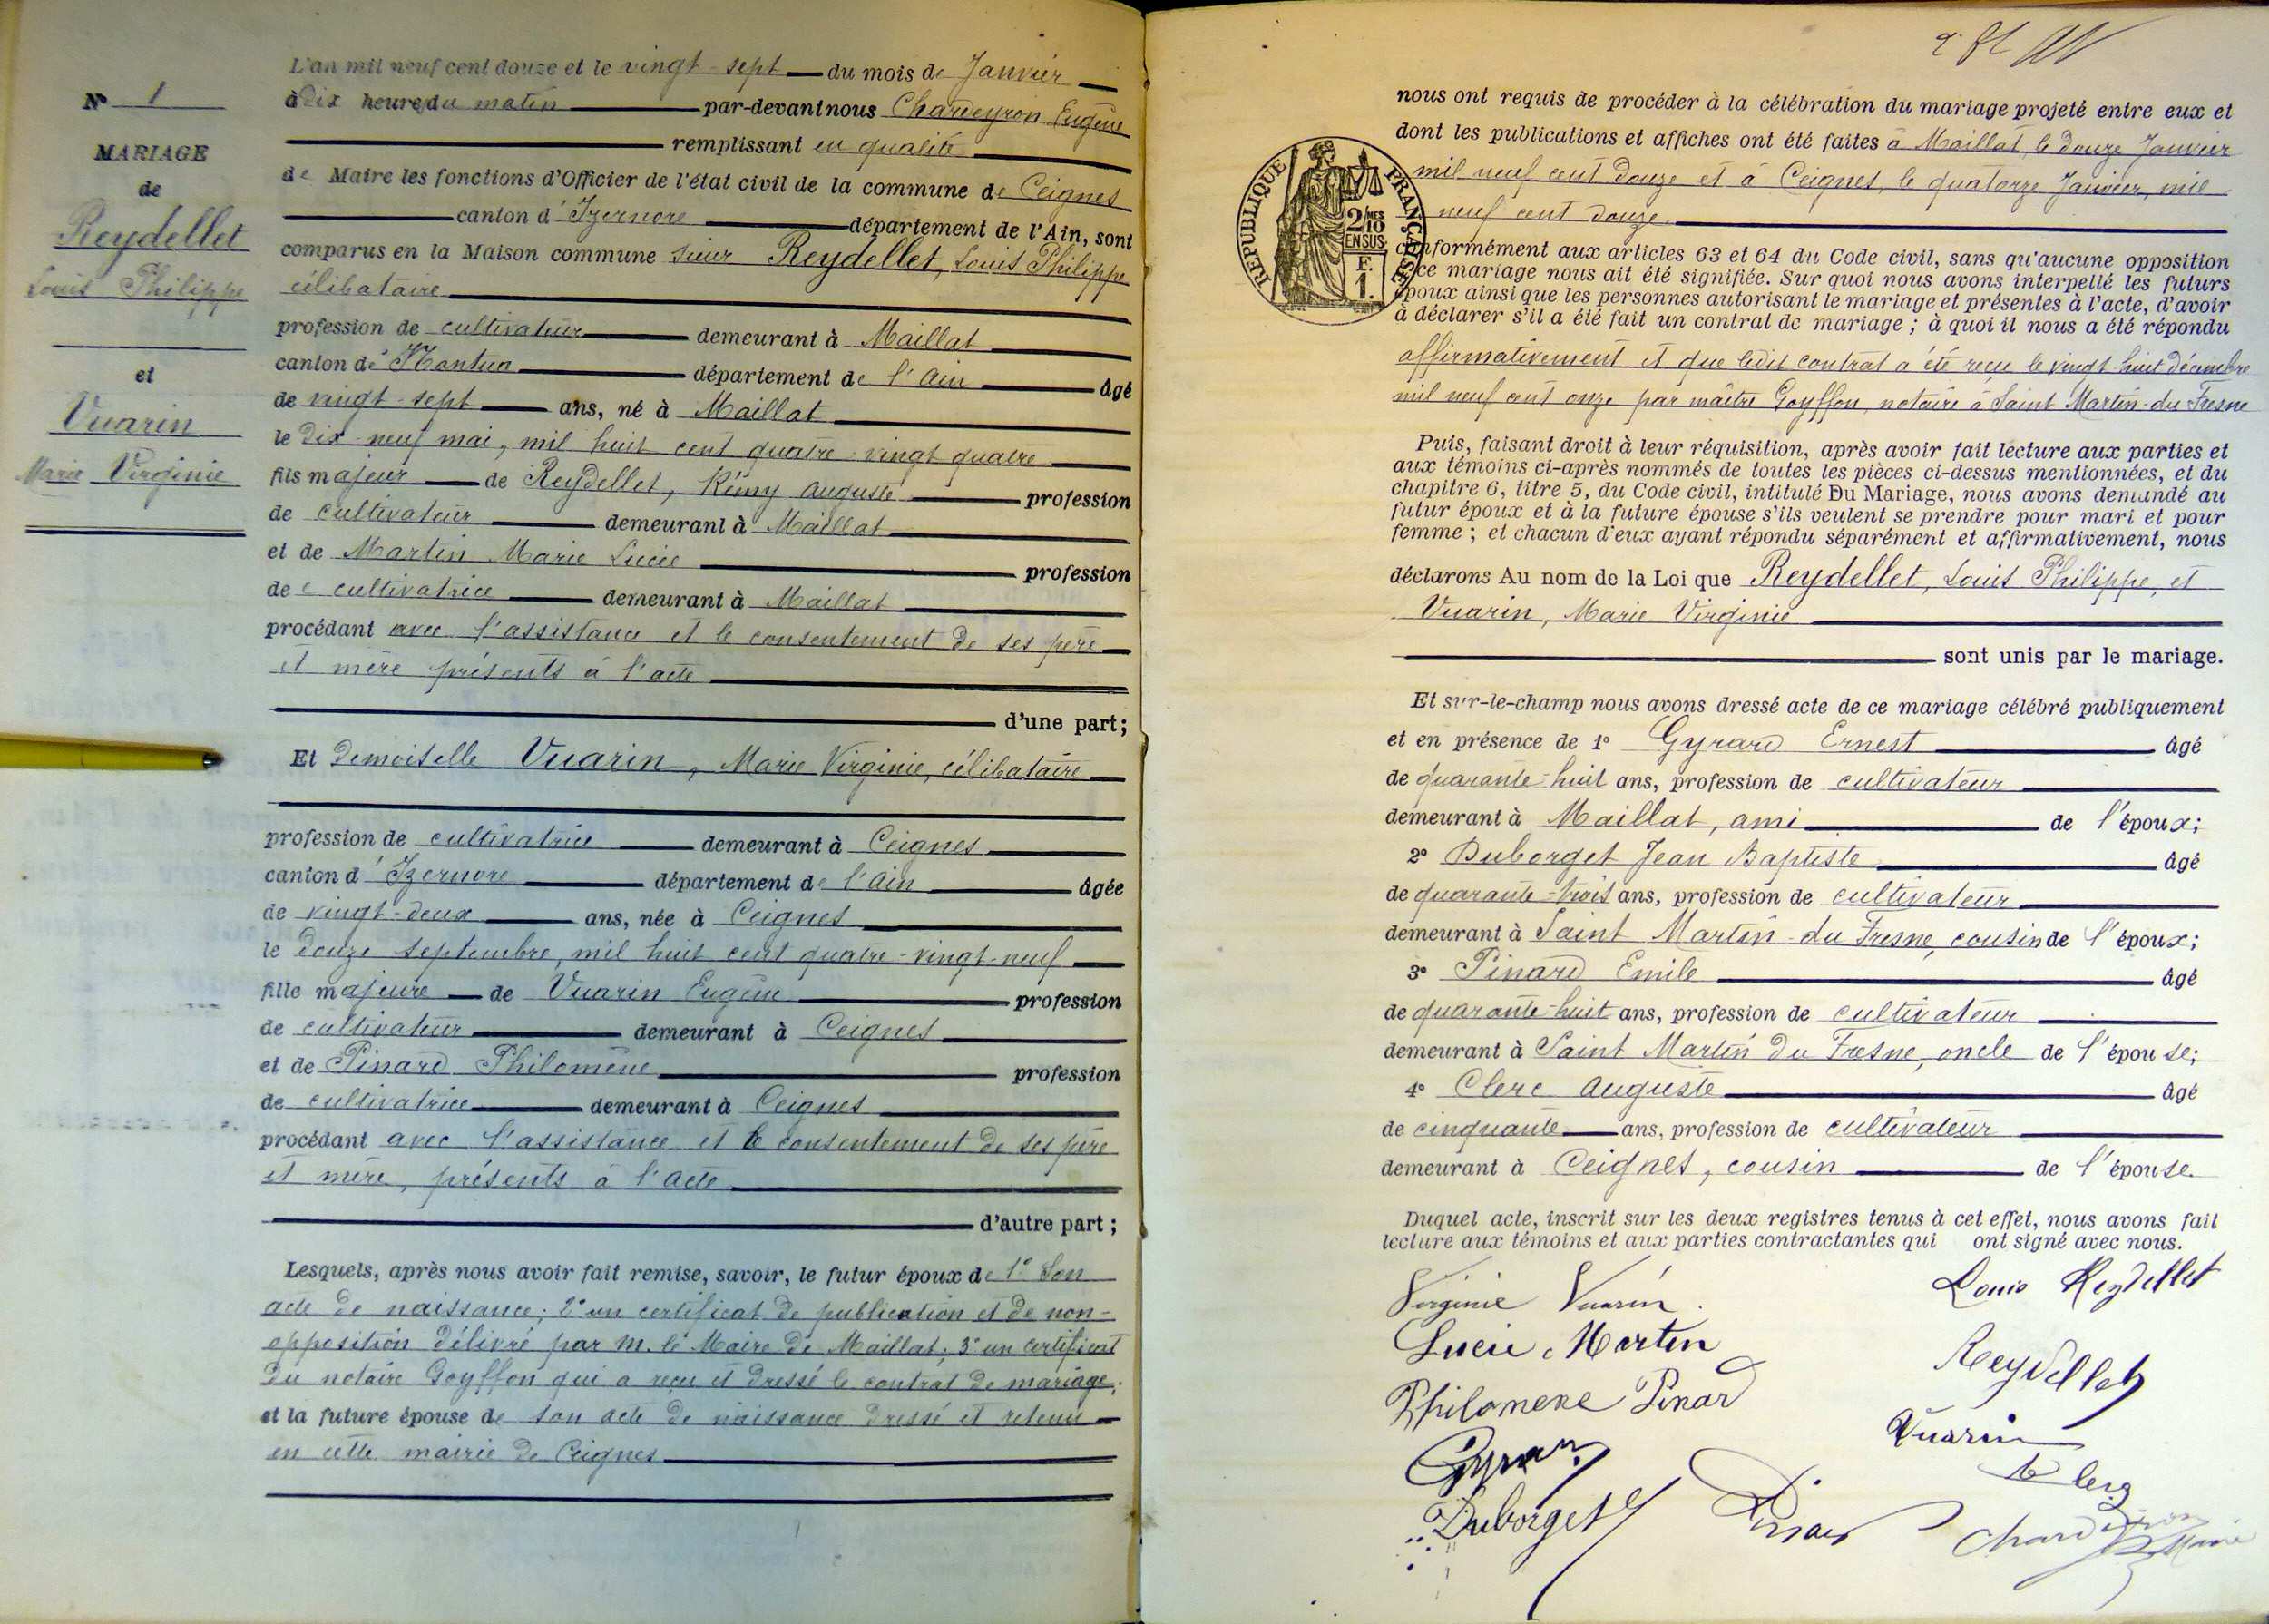 N° 1
MARIAGE
de
Reydellet
Louis Philippe
et
Vuarin
Marie Virginie
L'an mil neuf cent douze et le vingt-sept du mois de Janvier
à Dix heures du matin par-devant nous Chardeyron Eugène
remplissant en qualité
de Maire les fonctions d'Officier de l'état civil de la commune de Ceignes
canton d'Izernore département de l'Ain, sont
comparus en la Maison commune sieur Reydellet, Louis Philippe
célibataire
profession de cultivateur demeurant à Maillat
canton de Nantua département de l'Ain âgé
de vingt-sept ans, né à Maillat
le dix-neuf mai, mil huit cent quatre-vingt quatre
fils majeur de Reydellet, Rémy Auguste profession
de cultivateur demeurant à Maillat
et de Martin Marie Lucie profession
de cultivatrice demeurant à Maillat
procédant avec l'assistance et le consentement de ses père
et mère présents à l'acte
d'une part;
Et Demoiselle Vuarin, Marie Virginie, célibataire
profession de cultivatrice demeurant à Ceignes
canton d'Izernore département de l'Ain âgée
de vingt-deux ans, née à Ceignes
le douze septembre, mil huit cent quatre-vingt-neuf
fille majeure de Vuarin Eugène profession
de cultivateur demeurant à Ceignes
et de Pinard Philomène profession
de cultivatrice demeurant à Ceignes
procédant avec l'assistance et le consentement de ses père
et mère, présents à l'acte
d'autre part;
Lesquels, après nous avoir fait remise, savoir, le futur époux de 1° Son
acte de naissance; 2° un certificat de publication et de non-
opposition délivré par M. le Maire de Maillat; 3° un certificat
du notaire Goyffon qui a reçu et dressé le contrat de mariage;
et la future épouse de son acte de naissance dressé et retenu
en cette mairie de Ceignes
nous ont requis de procéder à la célébration du mariage projeté entre eux et
dont les publications et affiches ont été faites à Maillat, le douze Janvier
mil neuf cent douze et à Ceignes, le quatorze Janvier, mil
neuf cent douze
RÉPUBLIQUE FRANÇAISE
2/10MES
EN SUS
F.
1.
conformément aux articles 63 et 64 du Code civil, sans qu'aucune opposition
à ce mariage nous ait été signifiée. Sur quoi nous avons interpellé les futurs
époux ainsi que les personnes autorisant le mariage et présentes à l'acte, d'avoir
à déclarer s'il a été fait un contrat de mariage; à quoi il nous a été répondu
affirmativement et que ledit contrat a été reçu le vingt-huit décembre
mil neuf cent onze par maître Goyffon, notaire à Saint Martin-du Fresne
Puis, faisant droit à leur réquisition, après avoir fait lecture aux parties et
aux témoins ci-après nommés de toutes les pièces ci-dessus mentionnées, et du
chapitre 6, titre 5, du Code civil, intitulé Du Mariage, nous avons demandé au
futur époux et à la future épouse s'ils veulent se prendre pour mari et pour
femme; et chacun d'eux ayant répondu séparément et affirmativement, nous
déclarons Au nom de la Loi que Reydellet, Louis Philippe, et
Vuarin, Marie Virginie
sont unis par le mariage.
Et sur-le-champ nous avons dressé acte de ce mariage célébré publiquement
et en présence de 1° Gyrard Ernest âgé
de quarante-huit ans, profession de cultivateur
demeurant à Maillat, ami de l'époux;
2° Duborget Jean Baptiste âgé
de quarante-trois ans, profession de cultivateur
demeurant à Saint Martin-du Fresne, cousin de l'époux;
3° Pinard Emile âgé
de quarante-huit ans, profession de cultivateur
demeurant à Saint Martin du Fresne, oncle de l'épouse;
4° Clerc Auguste âgé
de cinquante ans, profession de cultivateur
demeurant à Ceignes, cousin de l'épouse
Duquel acte, inscrit sur les deux registres tenus à cet effet, nous avons fait
lecture aux témoins et aux parties contractantes qui ont signé avec nous.
Virginie Vuarin. Louis Reydellet
Lucie Martin Reydellet
Philomene Pinard Vuarin
Gyrard Clerc
Duborget Pinard Chardeyron Maire